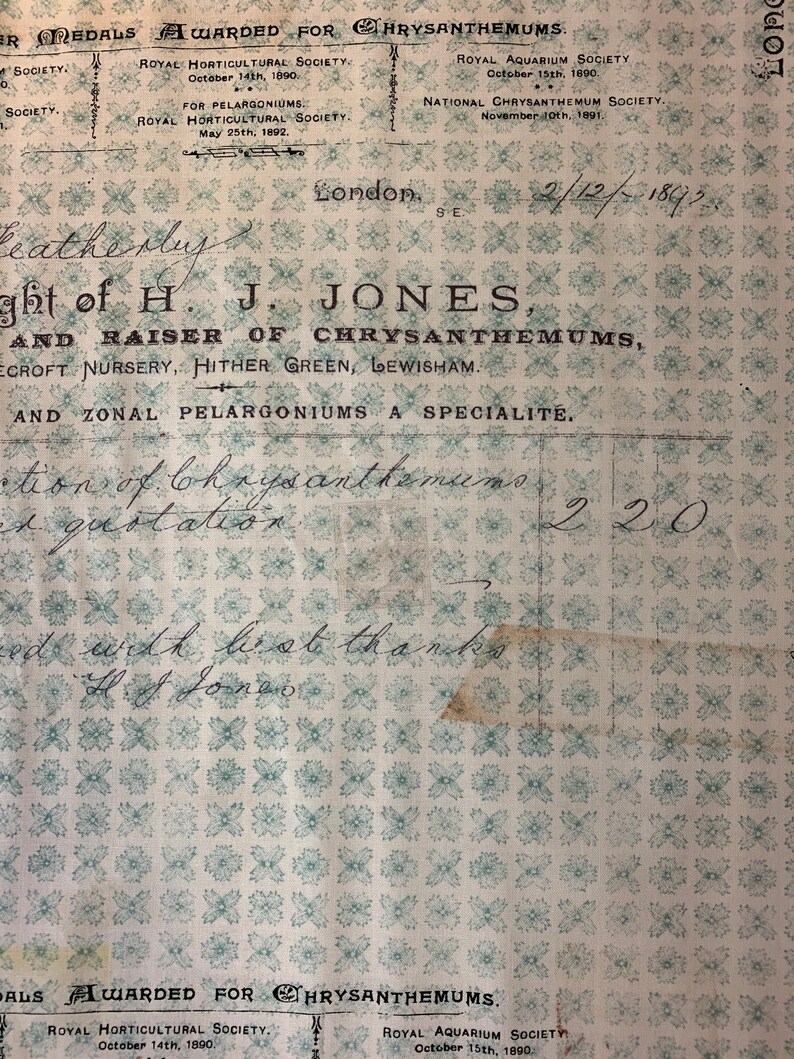 ER MEDALS AWARDED FOR CHRYSANTHEMUMS.
SOCIETY.
ROYAL HORTICULTURAL SOCIETY.
October 14th, 1890.
ROYAL AQUARIUM SOCIETY
October 15th, 1890.
SOCIETY.
FOR PELARGONIUMS.
ROYAL HORTICULTURAL SOCIETY.
May 25th, 1892.
NATIONAL CHRYSANTHEMUM SOCIETY.
November 10th, 1891.
London,
S.E.
2/12/- 1893
eatherby
ght of H. J. JONES,
AND RAISER OF CHRYSANTHEMUMS,
ECROFT NURSERY, HITHER GREEN, LEWISHAM.
AND ZONAL PELARGONIUMS A SPECIALITÉ.
ction of Chrysanthemums
er quotation 2 2 0
ed with best thanks
H. J Jones
DALS AWARDED FOR CHRYSANTHEMUMS.
ROYAL HORTICULTURAL SOCIETY.
October 14th, 1890.
ROYAL AQUARIUM SOCIETY
October 15th, 1890.